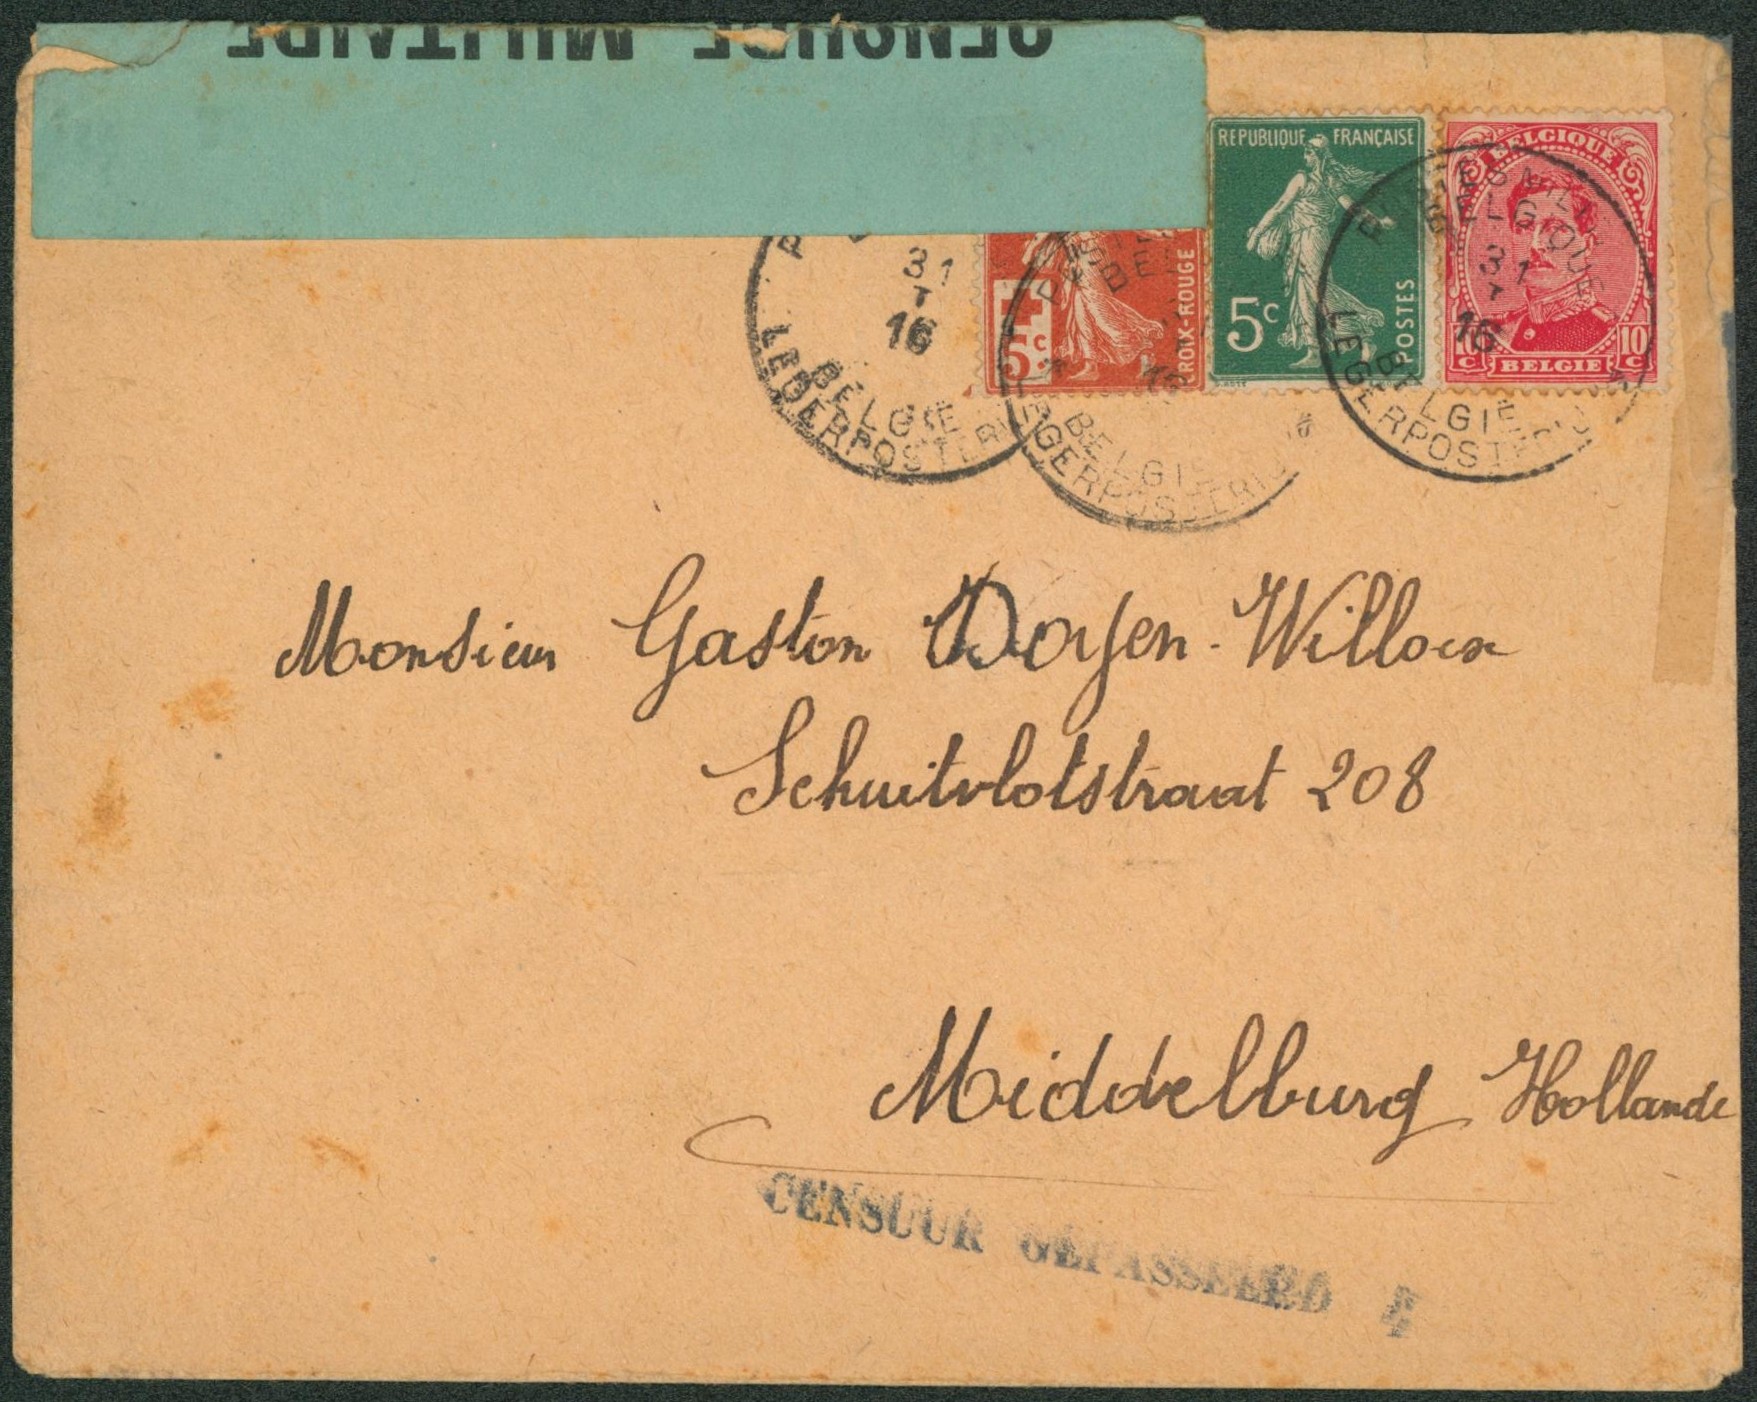 CENSURE MILITAIRE
REPUBLIQUE FRANÇAISE
5c
POSTES
BELGIQUE
10c 10c
BELGIE
5c
CROIX-ROUGE
31
16
BELGIE
LEGERPOSTERIJ
BE
16
BELGIE
LEGERPOSTERIJ
BELGIQUE
31
16
BELGIE
LEGERPOSTERIJ
Monsieur Gaston Doyen-Willocx
Schuitvlotstraat 208
Middelburg Hollande
CENSUUR GEPASSEERD 4